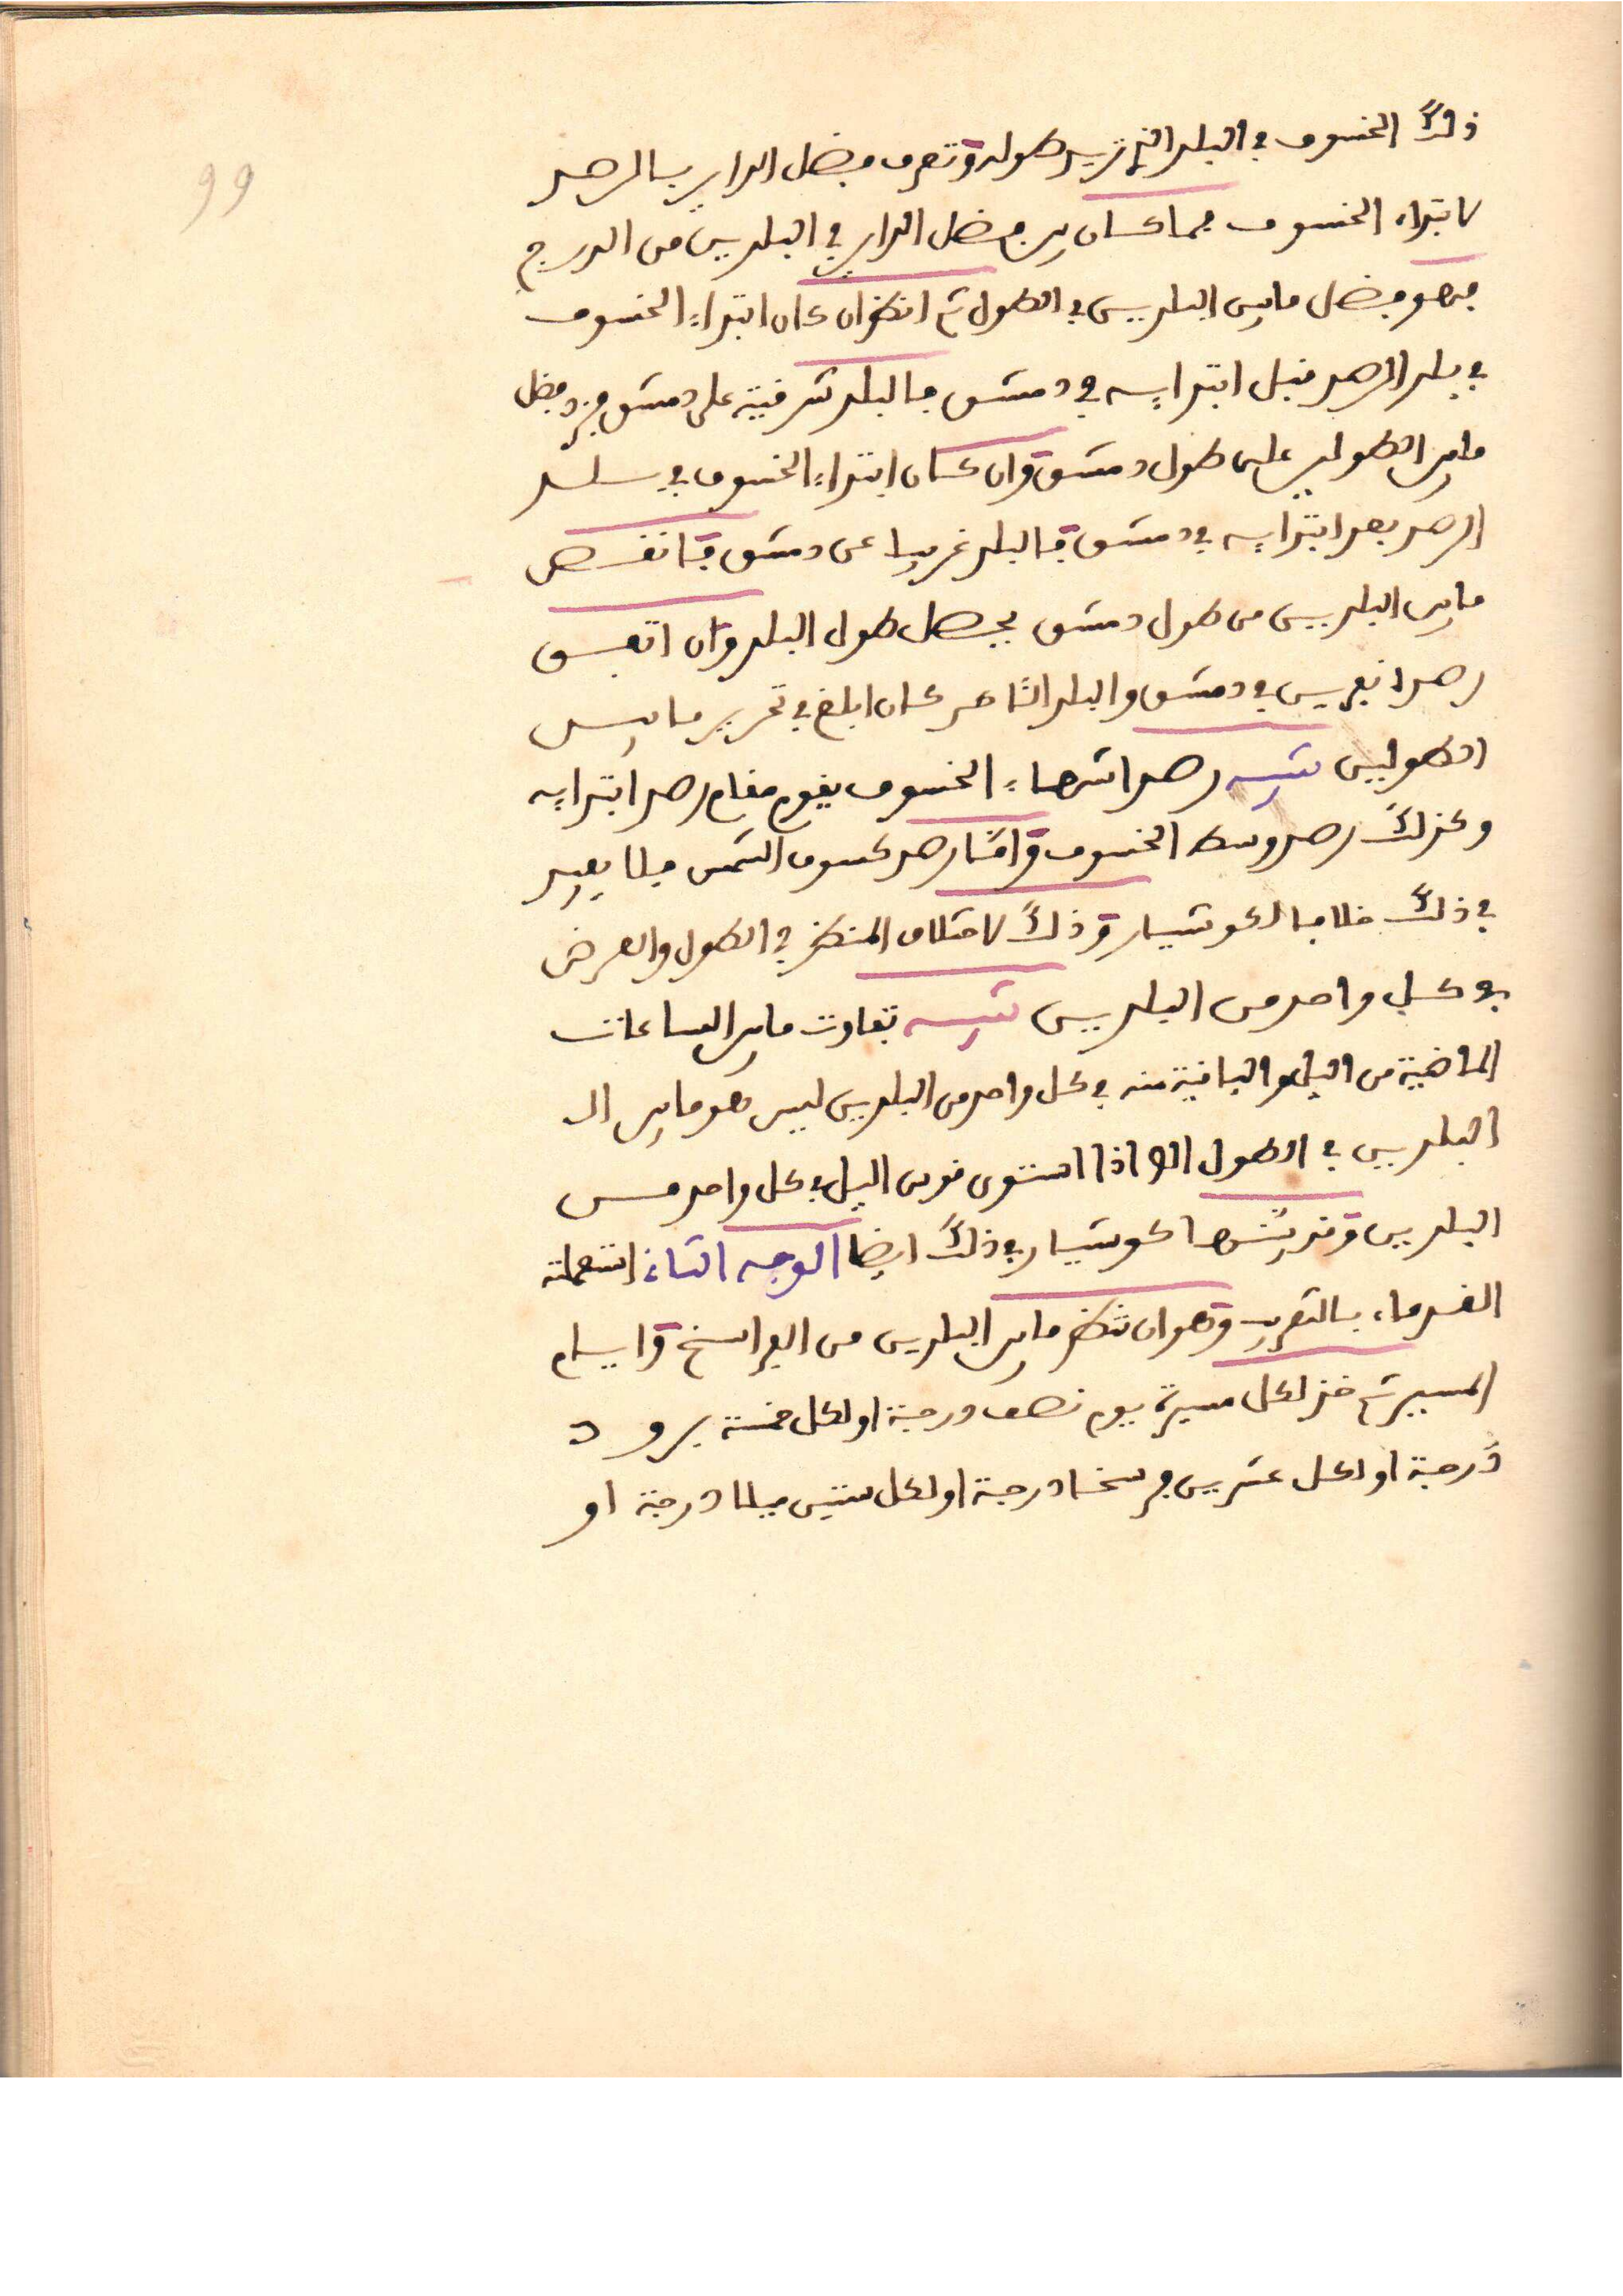 99
ذلك الخسوف في البلد الذي تريد طوله وتعرف فضل الداير بالرصد
لابتداء الخسوف فما كان بين فضل الداير في البلدين من الدرج
فهو فضل مابين البلدين في الطول ثم انظر ان كان ابتداء الخسوف
في بلد الرصد قبل ابتدايه في دمشق فالبلد شرقية على دمشق فزد فضل
مابين الطولين على طول دمشق وان كان ابتداء الخسوف في بلد
الرصد بعد ابتدايه في دمشق فالبلد غربيا عن دمشق فانقص
مابين البلدين من طول دمشق يحصل طول البلد وان اتفق
رصدا نفرين في دمشق والبلد الثا صر كان ابلغ في تحرير مابين
الطولين تنبيه رصد انتهاء الخسوف يقوم مقام رصد ابتدايه
وكذلك رصد وسط الخسوف واما رصد كسوف الشمس فلا يفيد
في ذلك خلافا لكوشيار وذلك لاختلاف المنظر في الطول والعرض
في كل واحد من البلدين تنبيه تفاوت مابين الساعات
الماضية من اليل والباقية منه في كل واحد من البلدين ليس هو مابين الـ
البلدين في الطول الا اذا استوى قوس اليل في كل واحد مـن
البلدين وقد سها كوشيار في ذلك ايضا الوجه الثاني استعملته
القدماء بالتقريب وهو ان تنظر مابين البلدين من الفراسخ وايام
المسير ثم خذ لكل مسيرة يوم نصف درجة او لكل خمسة برود
درجة او لكل عشرين فرسخا درجة او لكل ستين ميلا درجة او